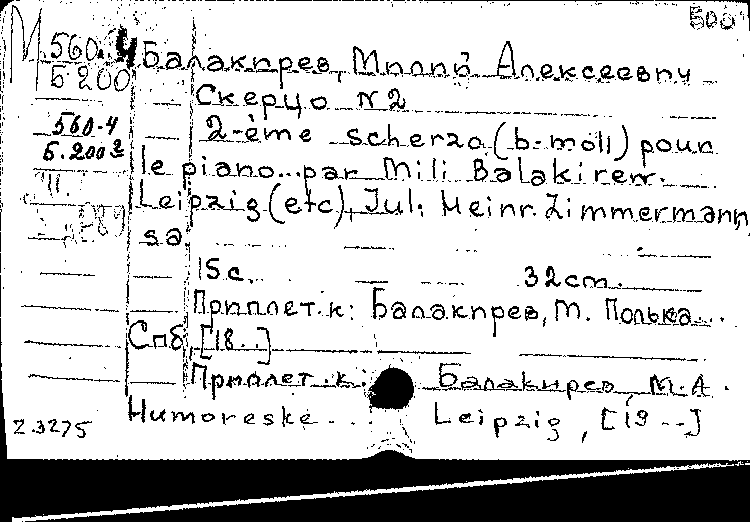 500
М 560.4 Балакирев, Милий Алексеевич
Б 200
Скерцо N 2
560-4 2-ème scherzo (b-moll) pour
Б.200 le piano... par Mili Balakirew.
Leipzig (etc), Jul. Heinr. Zimmermann,
sa.
15 с. 32 cm.
Приплет. к: Балакирев, М. Полька...
Спб, [18..]
Приплет. к: Балакирев, М.А.
Humoreske... Leipzig, [19--]
2.3275